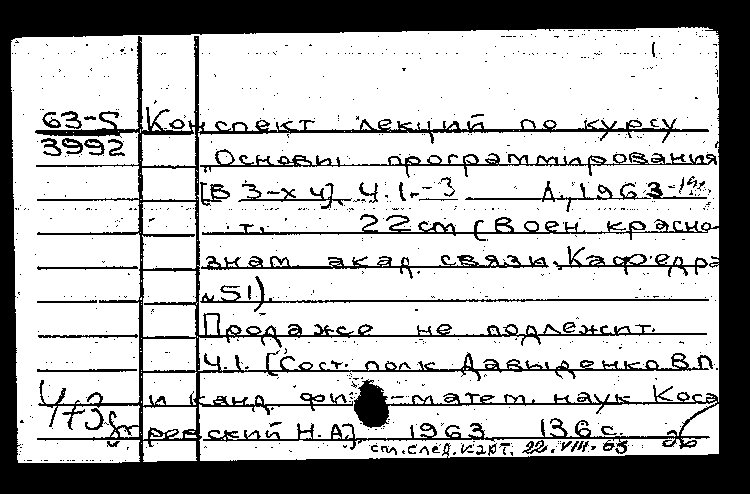 1
63-5 Конспект лекций по курсу
3992 "Основы программирования
[В 3-х ч]. Ч.1.-3 Л., 1963-19
т. 22 см (Воен. красно-
знам. акад. связи. Кафедра
№51).
Продаже не подлежит.
Ч.1. [Сост. полк Давыденко В.П.
и канд. физ-матем. наук Коса
ревский Н.А]. 1963 136 с.
см. след. карт. 22.VIII.63